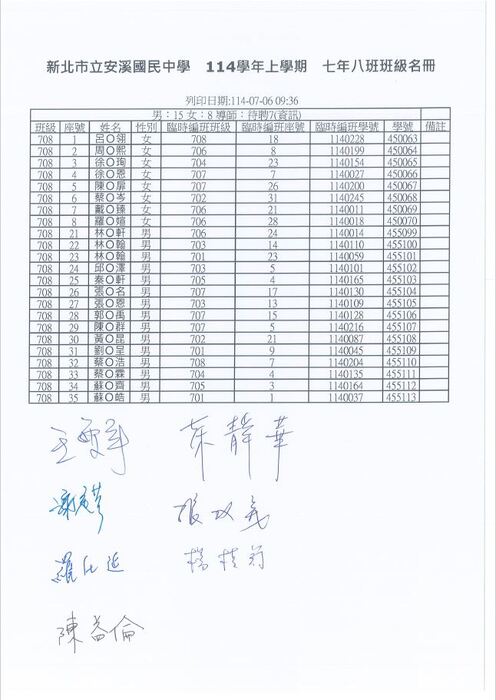 新北市立安溪國民中學 114學年上學期 七年八班班級名冊
列印日期:114-07-06 09:36
男：15 女：8 導師：待聘7(資訊)
班級 座號 姓名 性別 臨時編班班級 臨時編班座號 臨時編班學號 學號 備註
708 1 呂〇翎 女 708 18 1140228 450063
708 2 周〇熙 女 706 8 1140199 450064
708 3 徐〇珣 女 704 23 1140154 450065
708 4 徐〇恩 女 707 7 1140027 450066
708 5 陳〇扉 女 707 26 1140200 450067
708 6 蔡〇岑 女 702 31 1140245 450068
708 7 戴〇臻 女 706 21 1140011 450069
708 8 羅〇媗 女 706 28 1140018 450070
708 21 林〇軒 男 706 24 1140014 455099
708 22 林〇翰 男 703 14 1140110 455100
708 23 林〇翰 男 701 23 1140059 455101
708 24 邱〇澤 男 703 5 1140101 455102
708 25 秦〇軒 男 705 4 1140165 455103
708 26 張〇名 男 707 17 1140130 455104
708 27 張〇恩 男 703 13 1140109 455105
708 28 郭〇禹 男 707 15 1140128 455106
708 29 陳〇群 男 707 5 1140216 455107
708 30 黃〇昆 男 702 21 1140087 455108
708 31 劉〇呈 男 701 9 1140045 455109
708 32 蔡〇浩 男 708 7 1140204 455110
708 33 蔡〇霖 男 704 4 1140135 455111
708 34 蘇〇齊 男 705 3 1140164 455112
708 35 蘇〇皓 男 701 1 1140037 455113
羅仕廷 楊桂莉
陳益倫